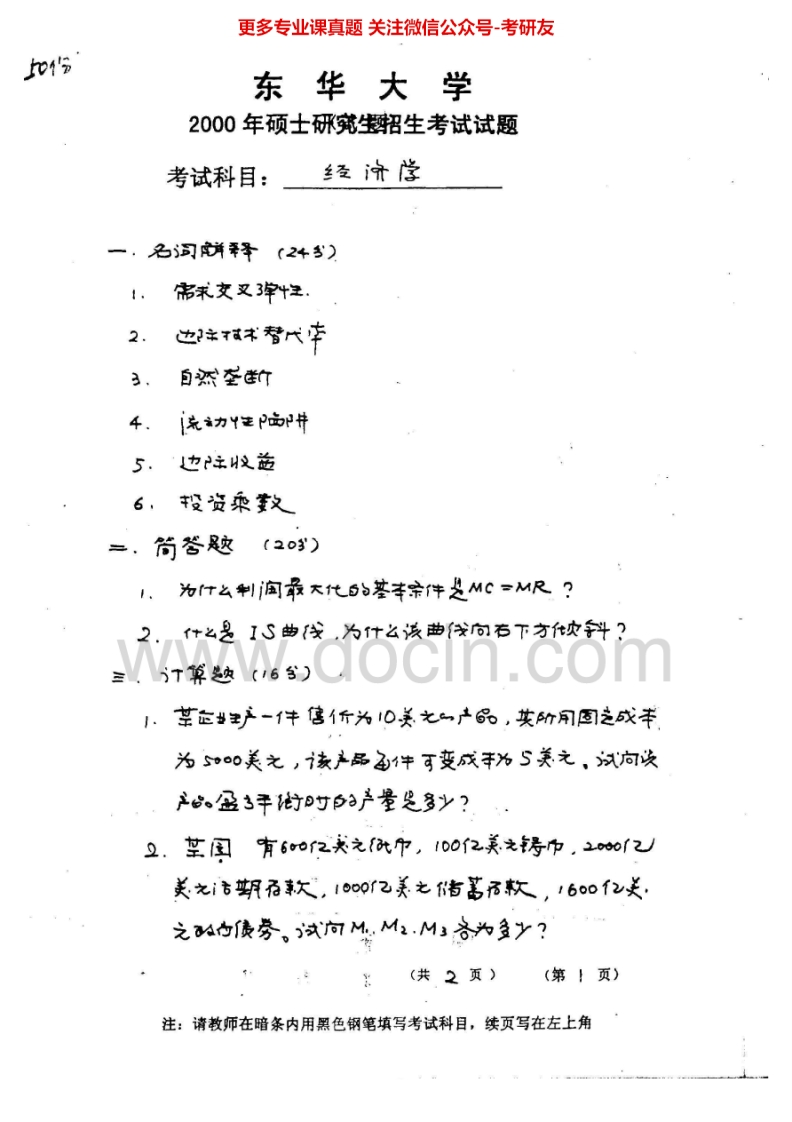 更多专业课真题 关注微信公众号-考研友
50份
东 华 大 学
2000 年硕士研究生招生考试试题
考试科目： 经济学
一. 名词解释 (24分)
1. 需求交叉弹性.
2. 边际技术替代率
3. 自然垄断
4. 流动性陷阱
5. 边际收益
6. 投资乘数
二. 简答题 (20分)
1. 为什么利润最大化的基本条件是MC=MR？
2. 什么是 IS曲线,为什么该曲线向右下方倾斜？
www.docin.com
三. 计算题 (16分)
1. 某企业生产一件售价为10美元的产品,其所用固定成本
为5000美元,该产品每件可变成本为5美元。试问该
产品盈亏平衡时的产量是多少？
2. 某国 有600亿美元纸币, 100亿美元铸币, 2000亿
美元活期存款, 1000亿美元储蓄存款, 1600亿美
元政府债券。试问M1. M2. M3 各为多少？
(共 2 页) (第 1 页)
注：请教师在暗条内用黑色钢笔填写考试科目，续页写在左上角